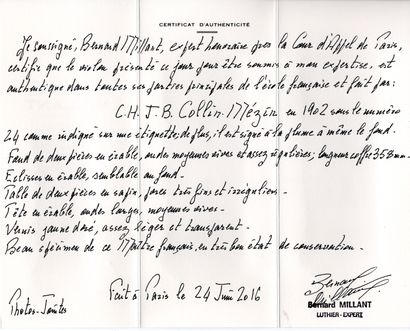 CERTIFICAT D'AUTHENTICITÉ
Je soussigné, Bernard Millant, expert honoraire près la Cour d'Appel de Paris,
certifie que le violon présenté ce jour pour être soumis à mon expertise, est
authentique dans toutes ses parties principales de l'école française et fait par:
C.H. J.B. Collin-Mézin en 1902 sous le numéro
24 comme indiqué sur une étiquette, de plus, il est signé à la plume à même le fond.
Fond de deux pièces en érable, ondes moyennes vives et assez régulières; longueur coffre 358 mm -
Eclisses en érable, semblable au fond.
Table de deux pièces en sapin, pores très fins et irréguliers -
Tête en érable, ondes larges, moyennes vives -
Vernis jaune doré, assez léger et transparent -
Beau spécimen de ce Maître français, en très bon état de conservation -
Fait à Paris le 24 Juin 2016
Photos-Jointes
Bernard MILLANT
LUTHIER-EXPERT